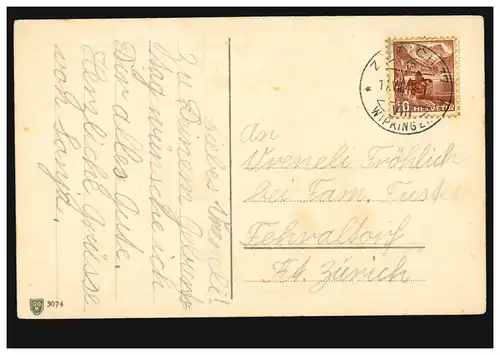 liebes Vreneli!
Zu Deinem Geburts-
tag wünsche ich
Dir alles Gute.
Herzliche Grüsse
von Sonja.
An
Vreneli Fröhlich
bei Fam. Fuster
Fehraltorf
Kt. Zürich
WIPKINGEN
10 HELVETIA
3074